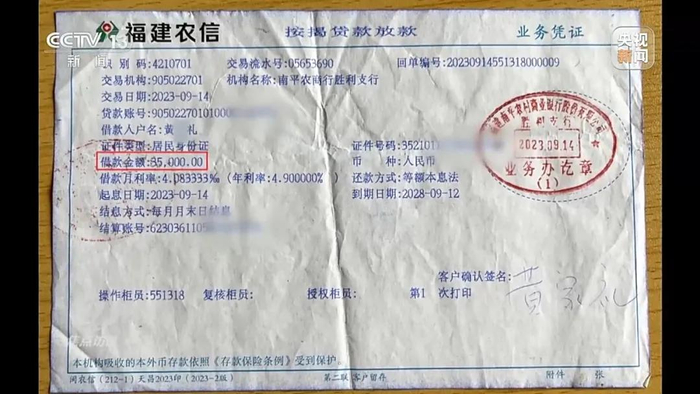 CCTV 13
新闻
央视
新闻
福建农信 按揭贷款放款 业务凭证
识别码:4210701 交易流水号:05653690 回单编号:20230914551318000009
交易机构:905022701 机构名称:南平农商行胜利支行
交易日期:2023-09-14
贷款账号:9050227010100
借款人户名:黄 礼
证件类型:居民身份证 证件号码:35210
借款金额:85,000.00 币 种:人民币
借款月利率:4.083333‰(年利率:4.900000%) 还款方式:等额本息法
起息日期:2023-09-14 到期日期:2028-09-12
结息方式:每月月末日结息
结算账号:623036110
福建南平农村商业银行股份有限公司
胜利支行
2023.09.14
业务办讫章
(1)
客户确认签名:
黄家礼
操作柜员:551318 复核柜员: 授权柜员: 第1 次打印
本机构吸收的本外币存款依照《存款保险条例》受到保护。
闽农信(212-1)天昌2023印(2023-2版) 第二联 客户留存 附件 张